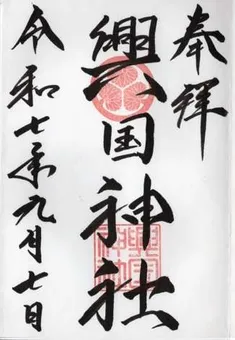 奉拝
興国神社
令和七年九月七日